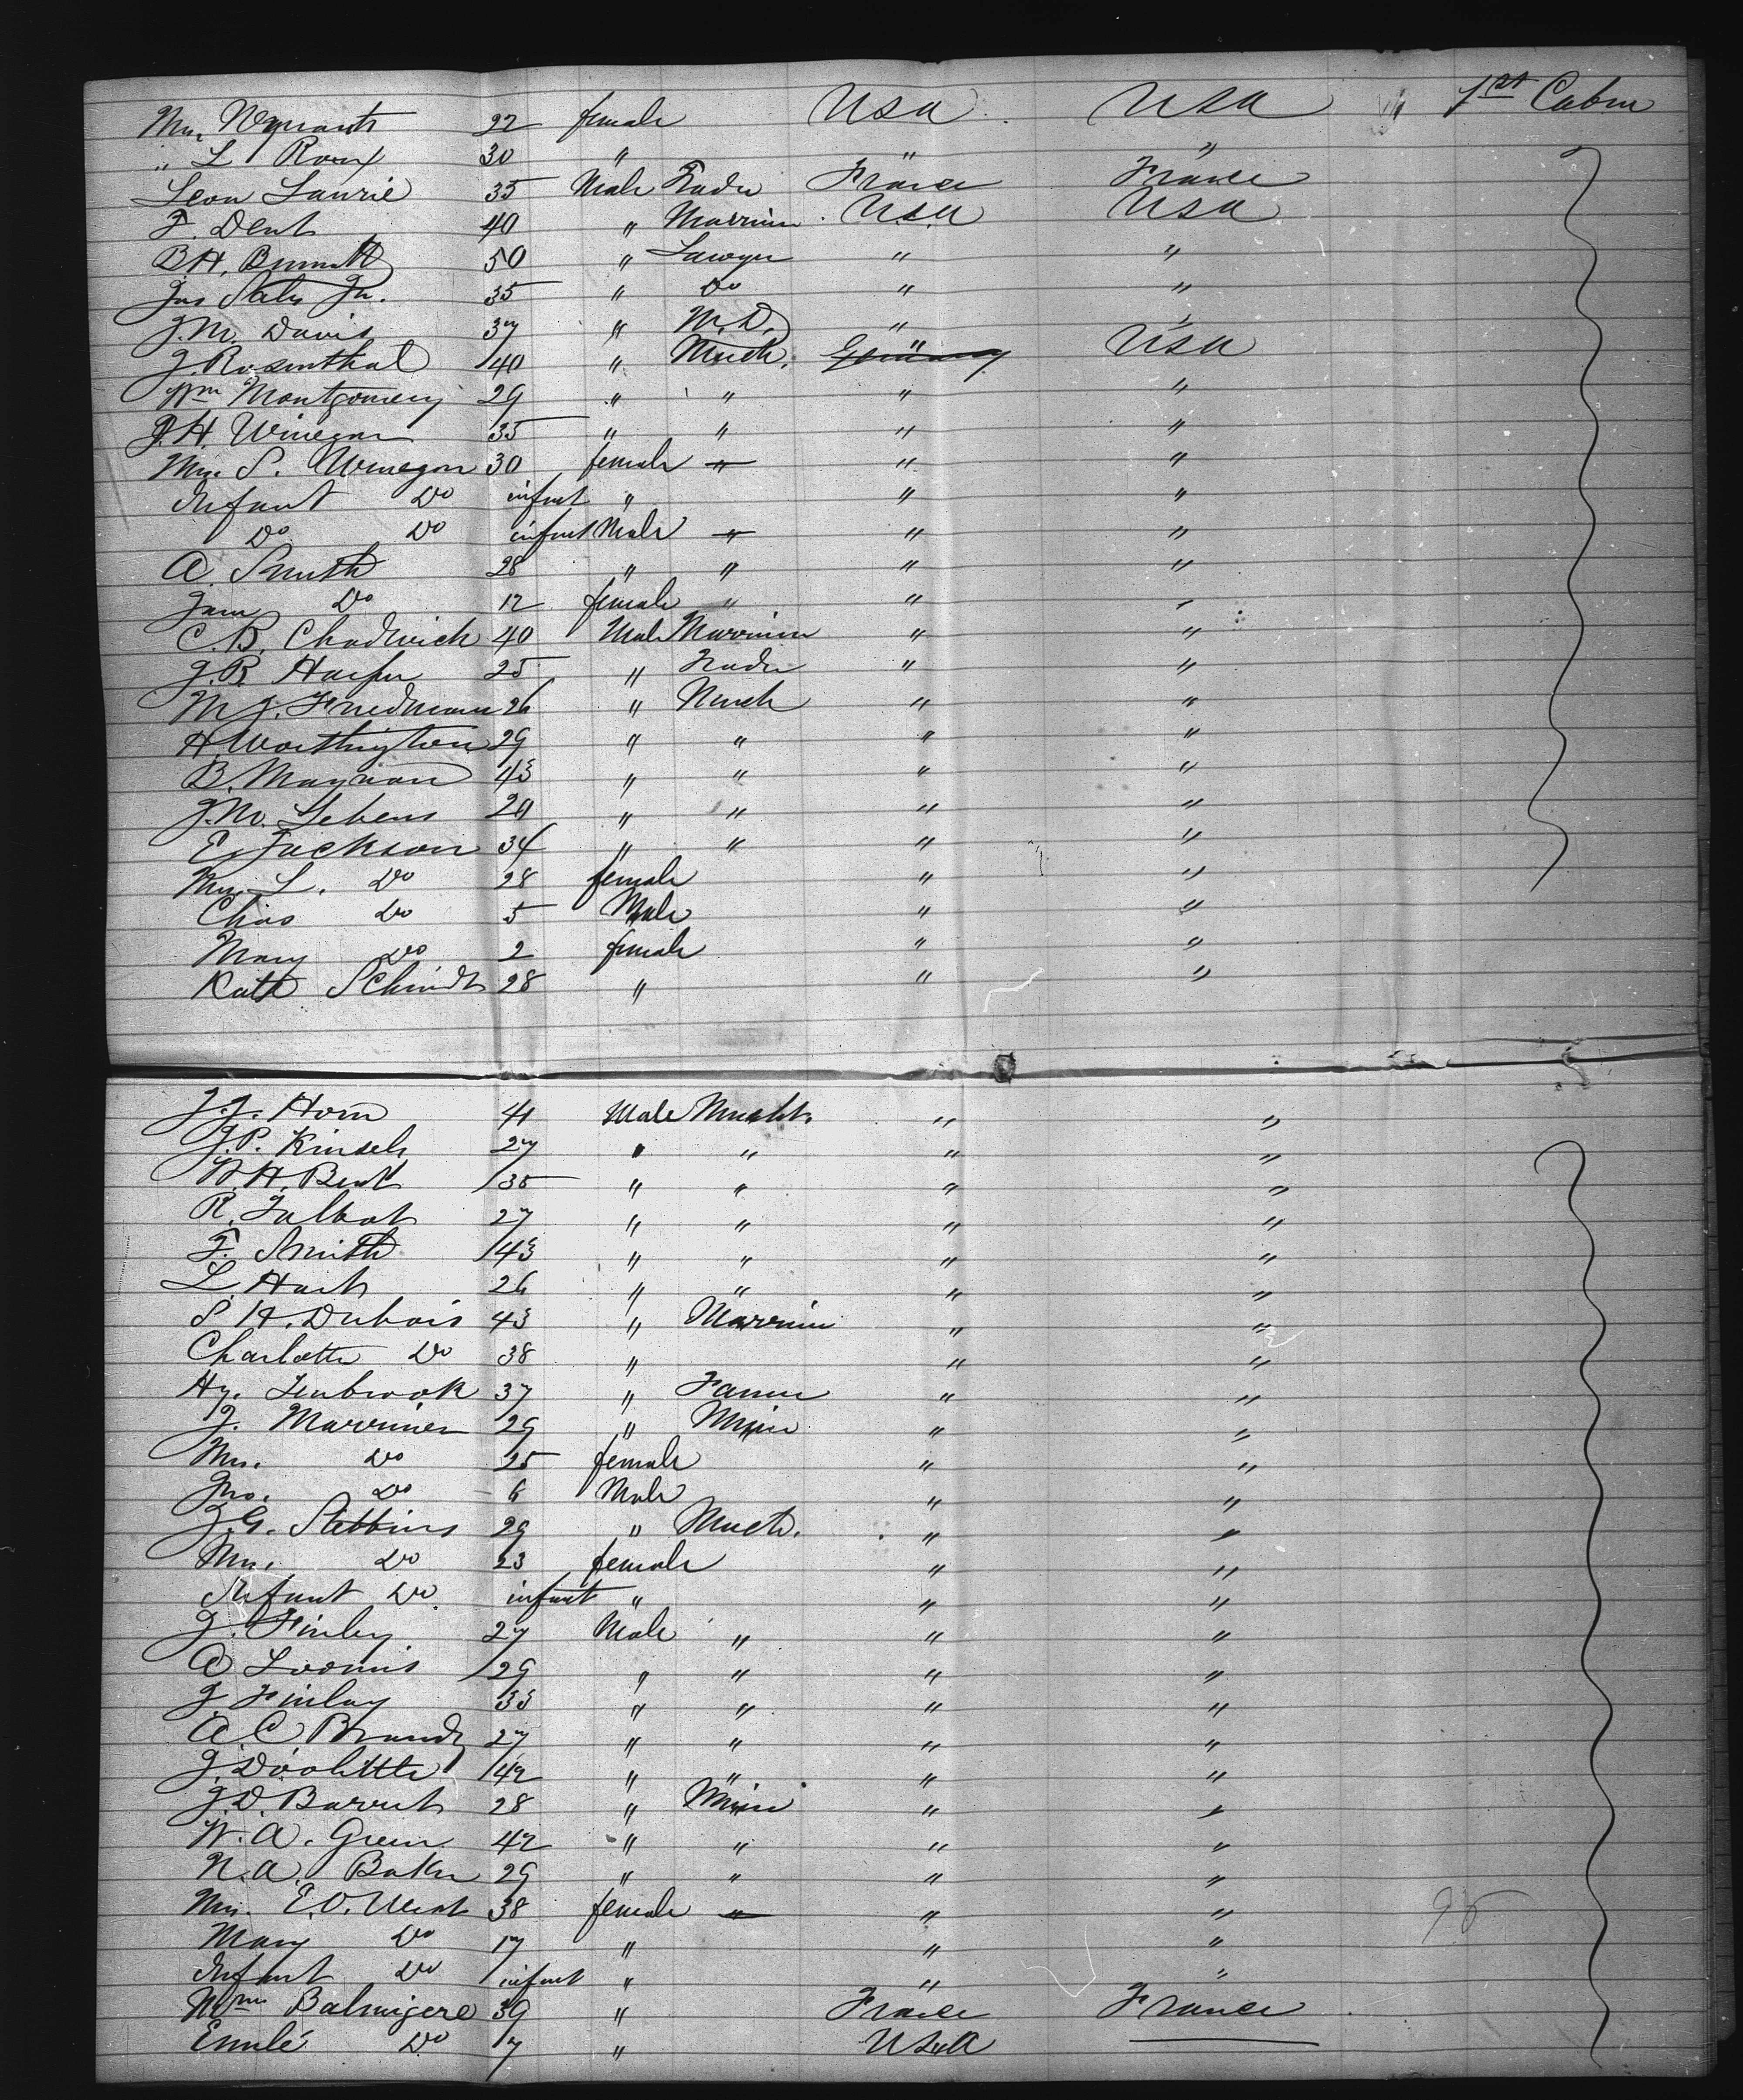 Mrs. Wynants 22 female USA USA 1st Cabin
" L Roux 30 " " "
Leon Laurie 35 Male Trader France France
F. Dent 40 " Marriner USA USA
B.H. Bennett 50 " Lawyer " "
Jas Slater Jr. 35 " Do " "
J.M. Davis 37 " M.D. " "
J. Rosenthal 40 " Merch. Germany " USA
Wm Montgomery 29 " " " "
J.H. Winegar 35 " " " "
Mrs. S. Winegar 30 female " " "
Infant Do infant " " "
Do Do infant Male " " "
A. Smith 28 " " " "
Jane Do 12 female " " "
C.B. Chadwick 40 Male Marriner " "
J.R. Harper 25 " Trader " "
M.J. Friedmann 26 " Merch " "
H Worthington 29 " " " "
B. Maynard 43 " " " "
J.M. Lebens 24 " " " "
E. Jackson 34 " " " "
Mrs. L. Do 28 female " "
Chas Do 5 Male " "
Mary Do 2 female " "
Kath Schmidt 28 " " "
J.J. Horn 41 Male Mercht. " "
J.P. Kinsels 27 " " " "
W.H. Bent 35 " " " "
R. Talbot 27 " " " "
F. Smith 43 " " " "
L. Hart 26 " " " "
S H. Dubois 43 " Marriner " "
Charlotte Do 38 " " "
Hy. Tenbrook 37 " Farmer " "
J. Marriner 29 " Miner " "
Mrs. Do 25 female " "
Jno. Do 6 Male " "
J.G. Stebbins 29 " Merch. " "
Mrs. Do 23 female " "
Infant Do. infant " " "
J. Finley 27 Male " " "
A Loomis 29 " " " "
J Finlay 33 " " " "
A.C Brandy 27 " " " "
J. Doolittle 42 " " " "
J.D. Barret 28 " Miner " "
W.A. Green 42 " " " "
N.A. Baker 29 " " " "
Mrs. E.O. West 38 female " " " 95
Mary Do 17 " " "
Infant Do infant " " "
Mme Balmigere 39 " France France
Emilé Do 7 " USA